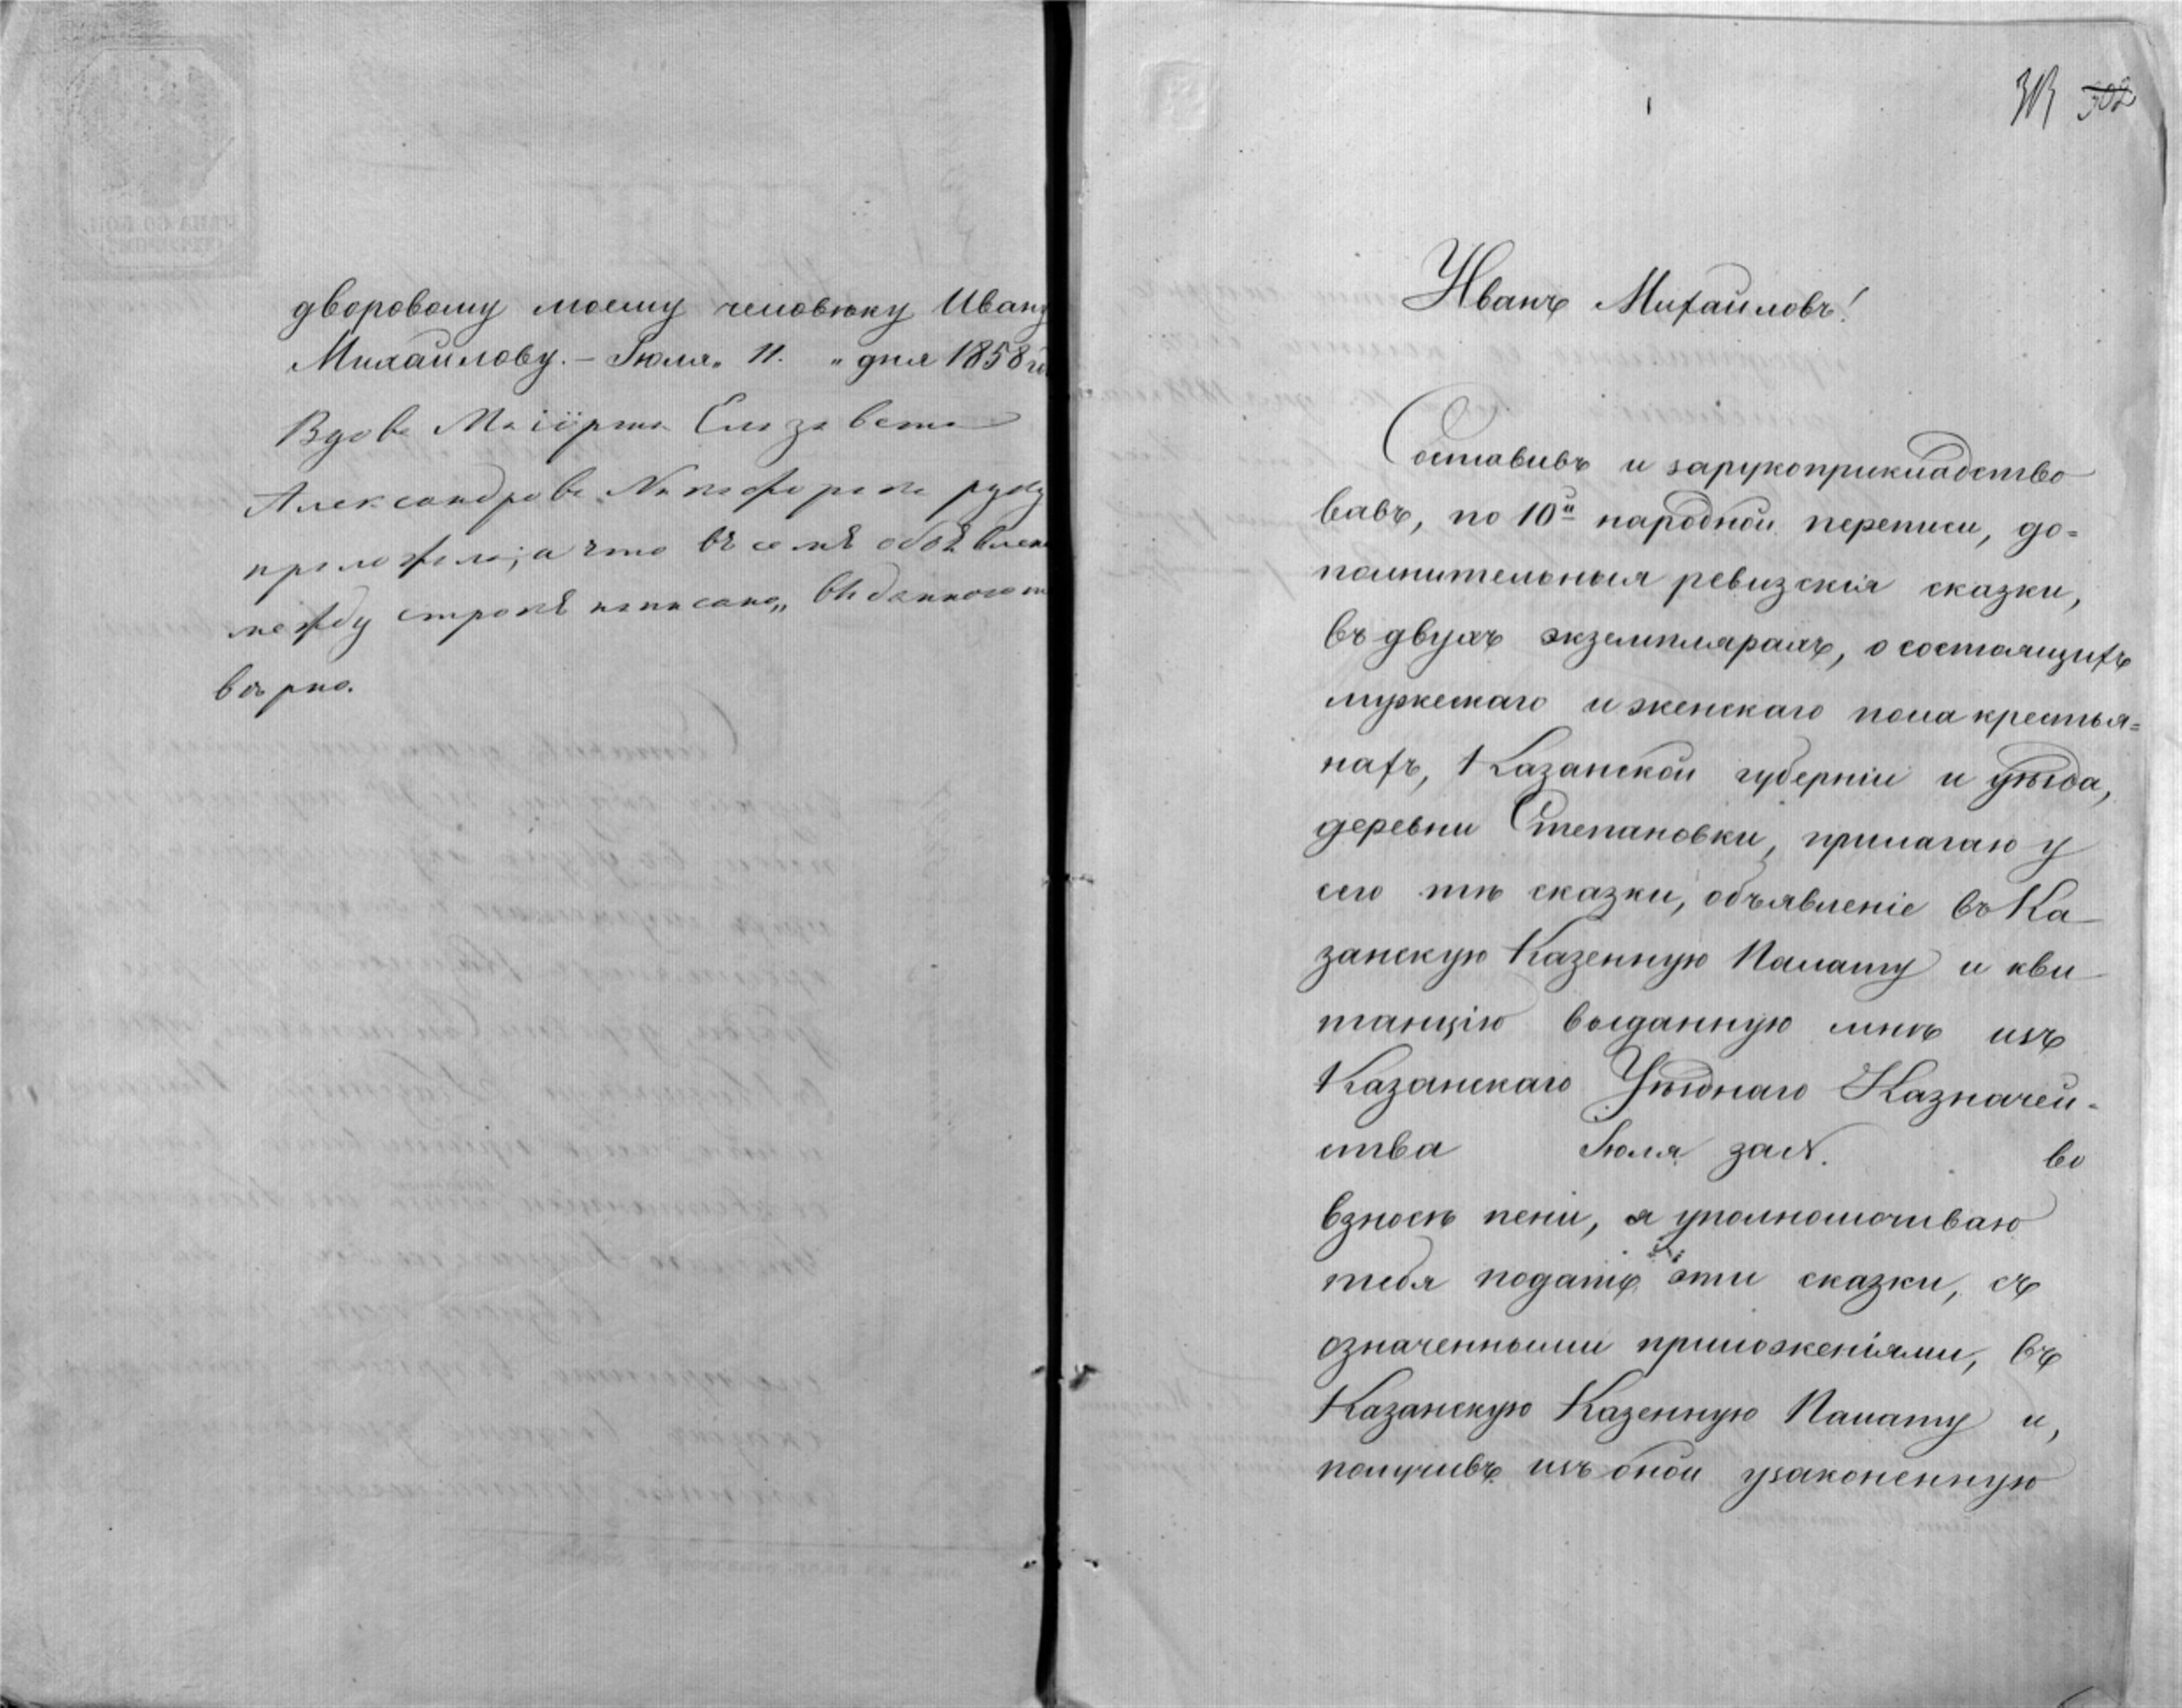 дворовому моему человѣку Ивану
Михайлову. – Іюля „ 11. „ дня 1858 го
Вдова Маіорша Елизавета
Александрова Никифорова руку
приложила; а что въ семъ объявлен
между строкъ написано „
вѣрно.
313 302
Иванъ Михайловъ!
Составивъ и зарукоприкладство
вавъ, по 10й народной переписи, до=
полнительныя ревизскія сказки,
въ двухъ экземплярахъ, о состоящихъ
мужескаго и женскаго пола крестья=
нахъ, Казанской губерніи и уѣзда,
деревни Степановки, прилагаю у
сего тѣ сказки, объявленіе въ Ка
занскую Казенную Палату и кви
танцію выданную мнѣ изъ
Казанскаго Уѣзднаго Казначей-
ства Іюля за №. во
взносѣ пени, я уполномочиваю
тебя подать эти сказки, съ
означенными приложеніями, въ
Казанскую Казенную Палату и,
получивъ изъ оной узаконенную